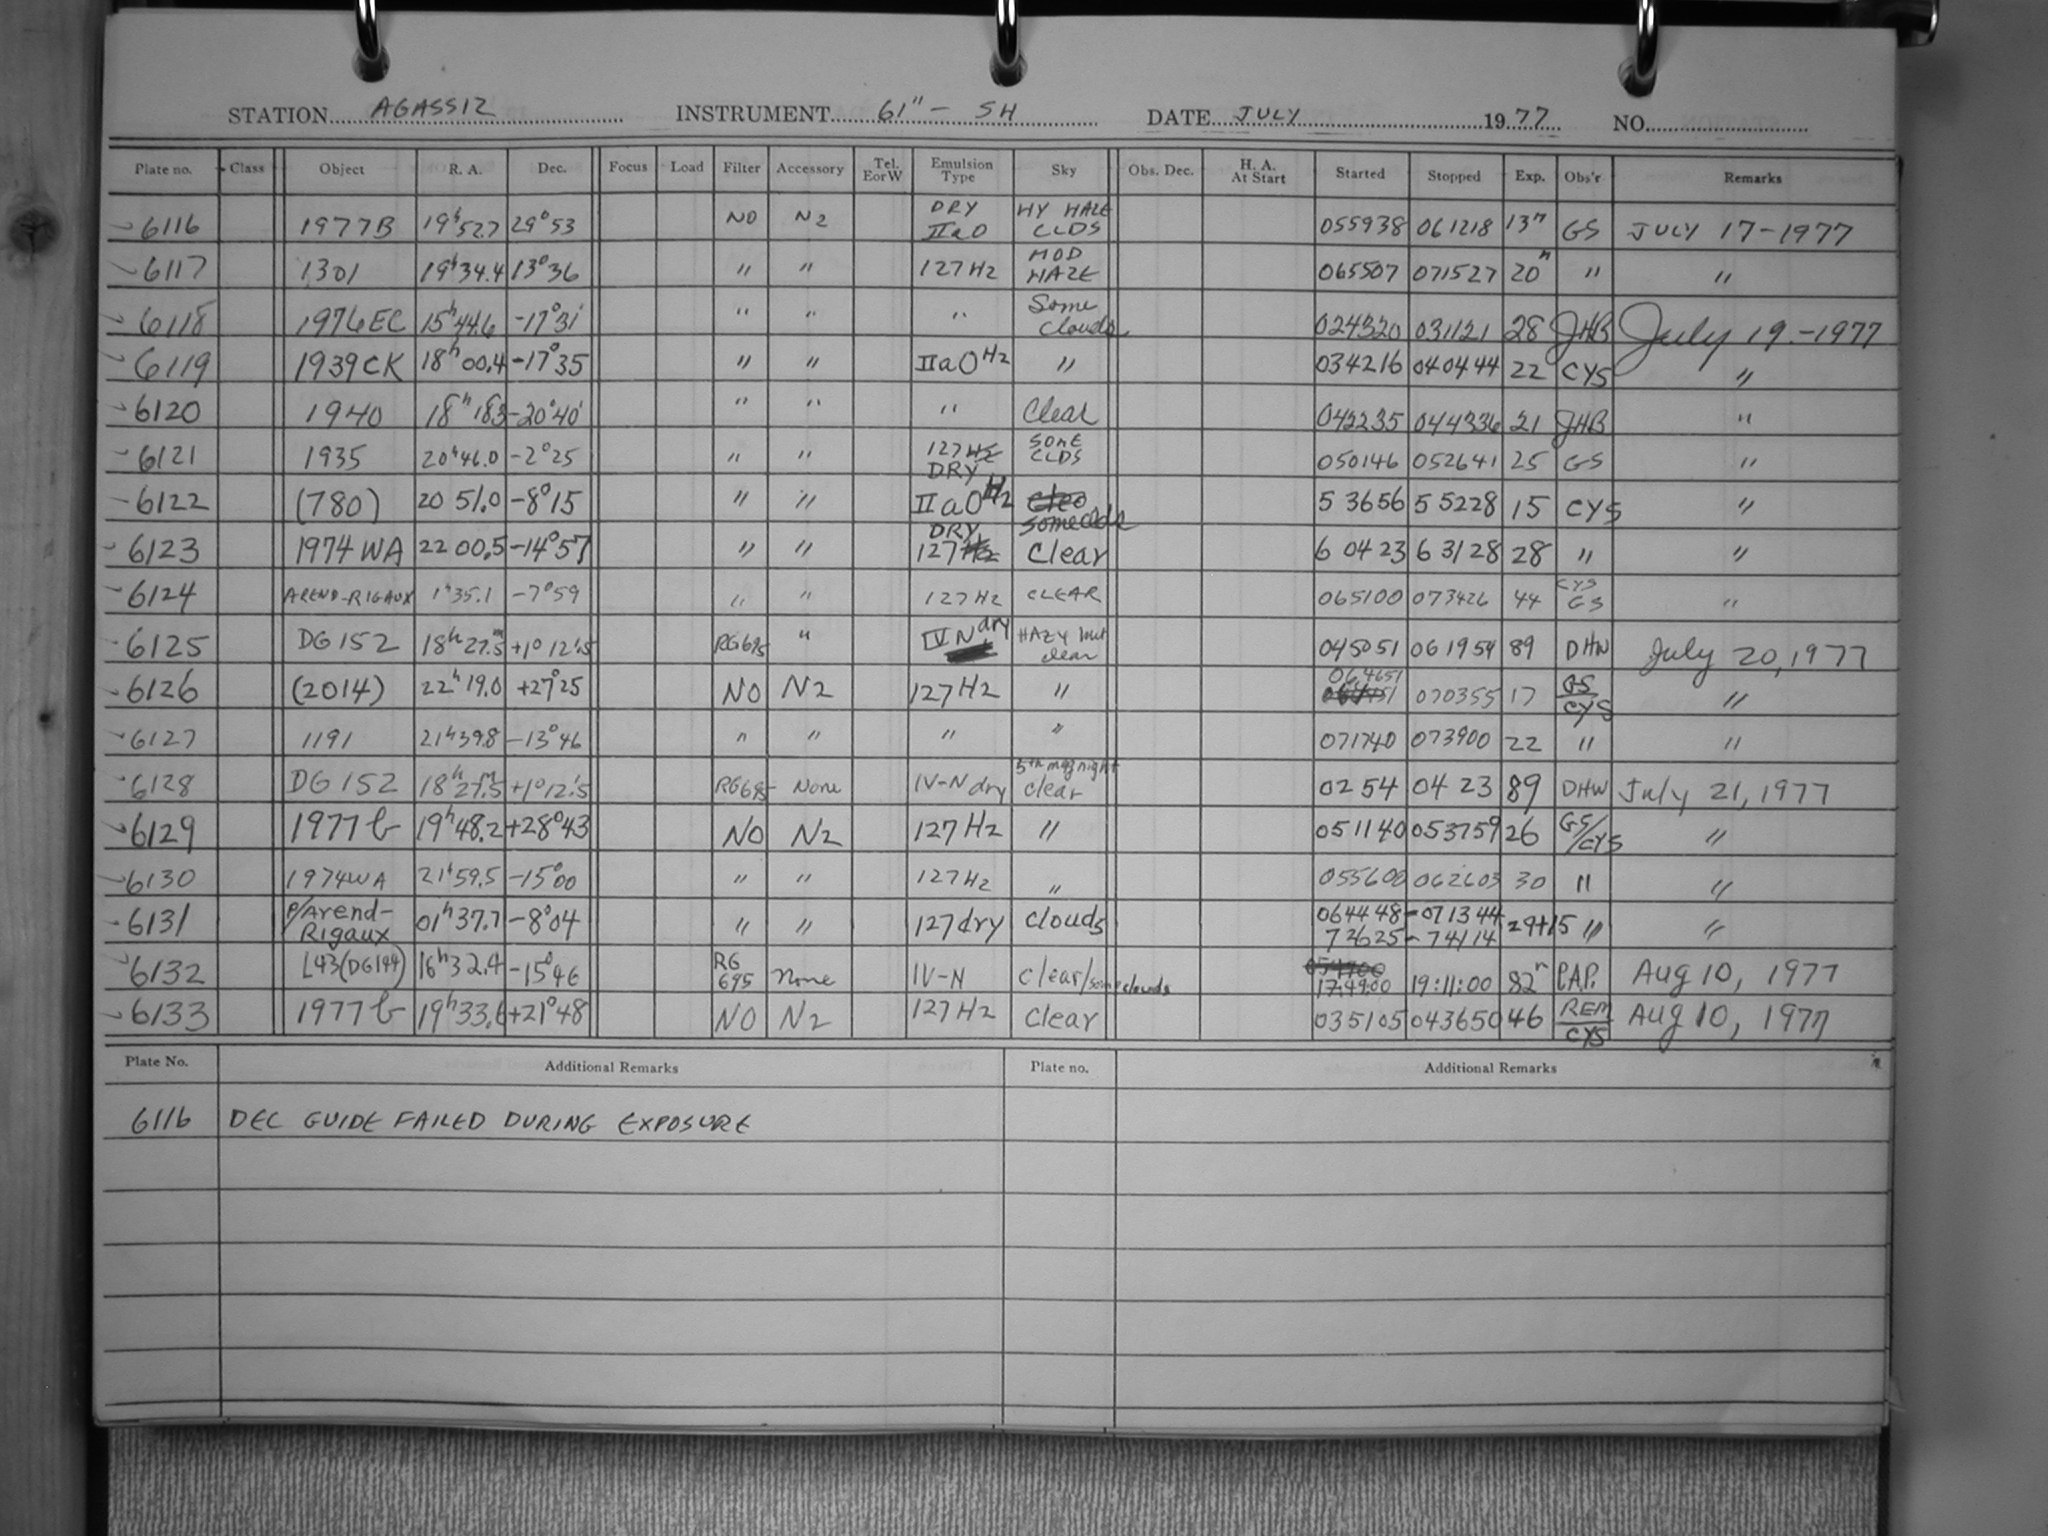 STATION AGASSIZ INSTRUMENT 61" - SH DATE JULY 1977 NO.
Plate no. Class Object R. A. Dec. Focus Load Filter Accessory Tel. EorW Emulsion Type Sky Obs. Dec. H. A. At Start Started Stopped Exp. Obs'r Remarks
6116 1977B 19h52.7 29°53 NO N2 DRY IIaO HY HAZE CLDS 055938 061218 13m GS JULY 17-1977
6117 1301 19h34.4 13°36 " " 127H2 MOD HAZE 065507 071527 20m " "
6118 1976EC 15h44.6 -17°31' " " " Some clouds 024320 031121 28 JHB July 19-1977
6119 1939CK 18h00.4 -17°35 " " IIaOH2 " 034216 040444 22 CYS "
6120 1940 18h18.3 -20°40' " " " Clear 042235 044336 21 JHB "
6121 1935 20h46.0 -2°25 " " 127 DRY SOME CLDS 050146 052641 25 GS "
6122 (780) 20 51.0 -8°15 " " IIaOH2 some clds 5 3656 5 5228 15 CYS "
6123 1974WA 22 00.5 -14°57 " " DRY 127 Clear 6 04 23 6 31 28 28 " "
6124 AREND-RIGAUX 1h35.1 -7°59 " " 127H2 CLEAR 065100 073426 44 CYS GS "
6125 DG 152 18h27.5m +1°12'.5 RG695 " IVN dry HAZY but clear 045051 061954 89 DHW July 20, 1977
6126 (2014) 22h19.0 +27°25 NO N2 127H2 " 064651 070355 17 GS/CYS "
6127 1191 21h39.8 -13°46 " " " " 071740 073900 22 " "
6128 DG 152 18h27.5m +1°12'.5 RG695 None IV-N dry 5th mag night clear 02 54 04 23 89 DHW July 21, 1977
6129 1977b 19h48.2 +28°43 NO N2 127H2 " 051140 053759 26 GS/CYS "
6130 1974WA 21h59.5 -15°00 " " 127H2 " 055600 062603 30 " "
6131 P/Arend-Rigaux 01h37.7 -8°04 " " 127dry clouds 064448-071344 72625-74114 29+15 " "
6132 L43(DG144) 16h32.4 -15°46 RG 695 None IV-N clear/some clouds 17:49:00 19:11:00 82m P.A.P. Aug 10, 1977
6133 1977b 19h33.6 +21°48 NO N2 127H2 Clear 035105 043650 46 REM/CYS Aug 10, 1977
Plate No. Additional Remarks Plate no. Additional Remarks
6116 DEC GUIDE FAILED DURING EXPOSURE